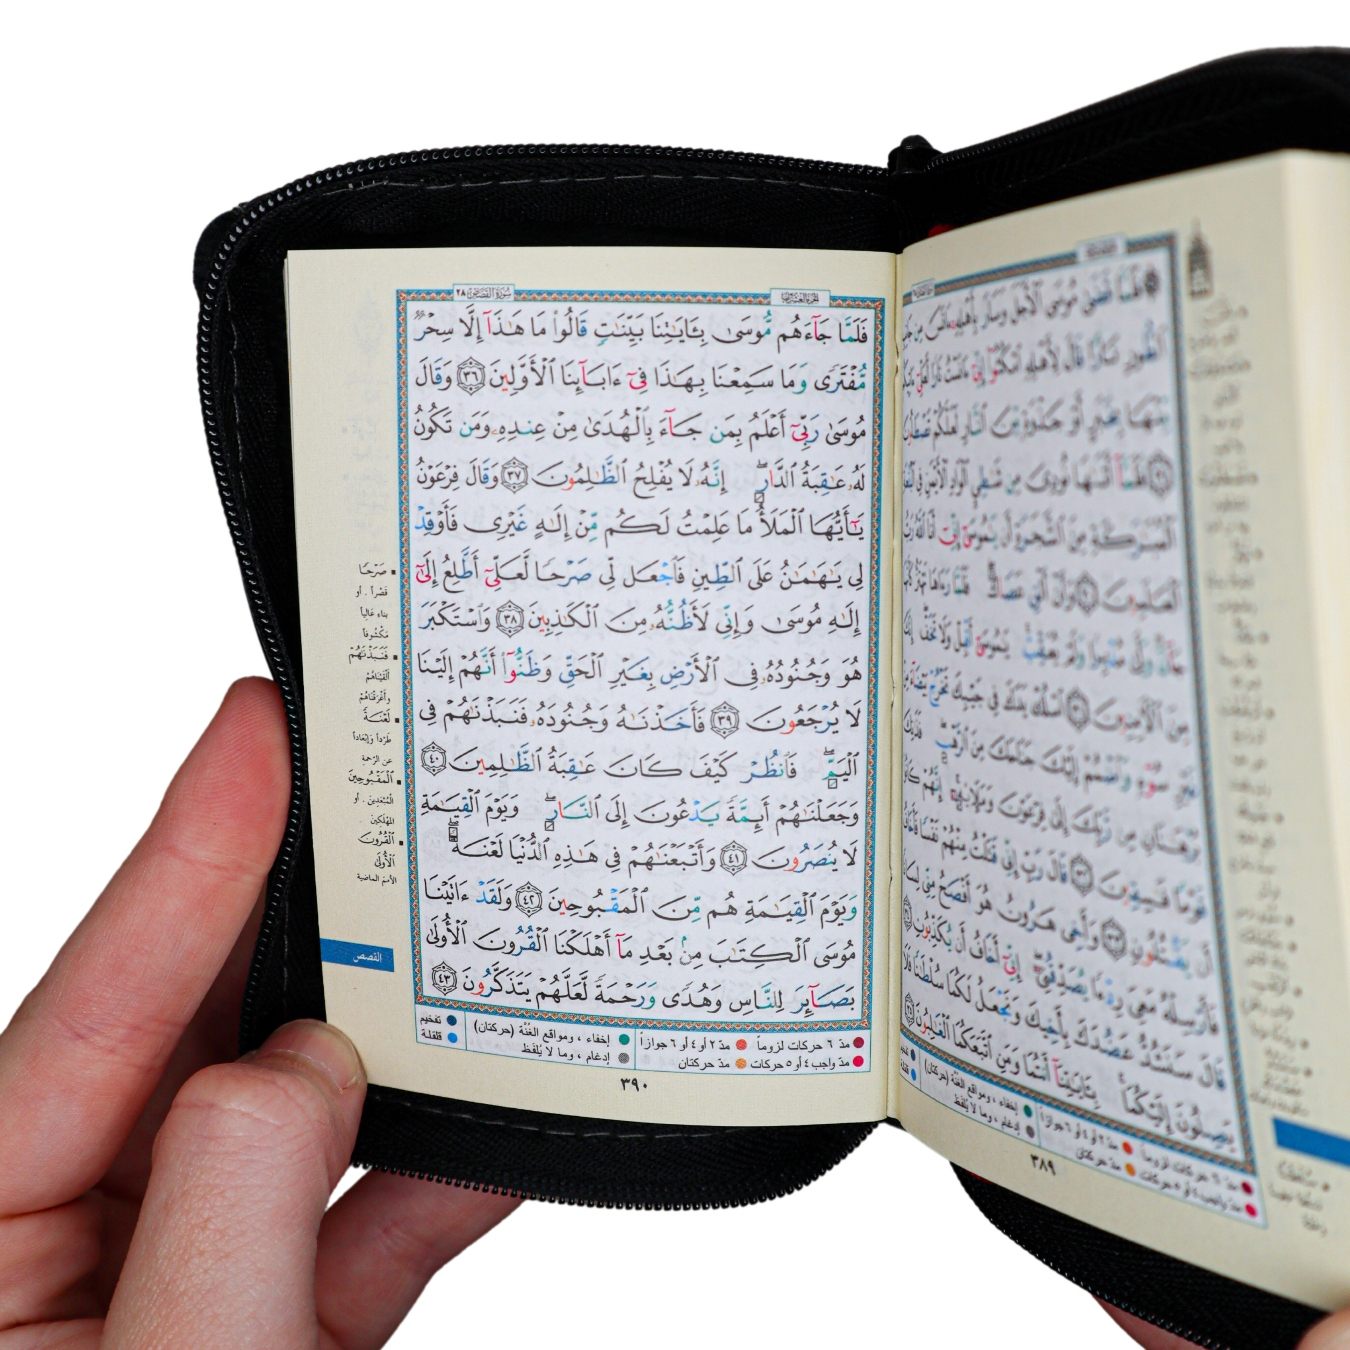 ۞ فَلَمَّا قَضَىٰ مُوسَى ٱلْأَجَلَ وَسَارَ بِأَهْلِهِۦٓ ءَانَسَ مِن
ٱلطُّورِ نَارًا قَالَ لِأَهْلِهِ ٱمْكُثُوٓا۟ إِنِّىٓ ءَانَسْتُ نَارًا لَّعَلِّىٓ
مِّنْهَا بِخَبَرٍ أَوْ جَذْوَةٍ مِّنَ ٱلنَّارِ لَعَلَّكُمْ تَصْطَلُونَ
٢٩ فَلَمَّآ أَتَىٰهَا نُودِىَ مِن شَٰطِئِ ٱلْوَادِ ٱلْأَيْمَنِ فِى
ٱلْمُبَٰرَكَةِ مِنَ ٱلشَّجَرَةِ أَن يَٰمُوسَىٰٓ إِنِّىٓ أَنَا ٱللَّهُ رَبُّ
ٱلْعَٰلَمِينَ ٣٠ وَأَنْ أَلْقِ عَصَاكَ ۖ فَلَمَّا رَءَاهَا تَهْتَزُّ
جَآنٌّ وَلَّىٰ مُدْبِرًا وَلَمْ يُعَقِّبْ ۚ يَٰمُوسَىٰٓ أَقْبِلْ وَلَا تَخَفْ ۖ إِنَّكَ
مِنَ ٱلْءَامِنِينَ ٣١ ٱسْلُكْ يَدَكَ فِى جَيْبِكَ تَخْرُجْ بَيْضَآءَ
غَيْرِ سُوٓءٍ وَٱضْمُمْ إِلَيْكَ جَنَاحَكَ مِنَ ٱلرَّهْبِ ۖ فَذَٰنِكَ
بُرْهَٰنَانِ مِن رَّبِّكَ إِلَىٰ فِرْعَوْنَ وَمَلَإِي۟هِۦٓ ۚ إِنَّهُمْ كَانُوا۟
قَوْمًا فَٰسِقِينَ ٣٢ قَالَ رَبِّ إِنِّى قَتَلْتُ مِنْهُمْ نَفْسًا فَأَخَافُ
أَن يَقْتُلُونِ ٣٣ وَأَخِى هَٰرُونُ هُوَ أَفْصَحُ مِنِّى لِسَانًا
فَأَرْسِلْهُ مَعِىَ رِدْءًا يُصَدِّقُنِىٓ ۖ إِنِّىٓ أَخَافُ أَن يُكَذِّبُونِ ٣٤
قَالَ سَنَشُدُّ عَضُدَكَ بِأَخِيكَ وَنَجْعَلُ لَكُمَا سُلْطَٰنًا فَلَا
يَصِلُونَ إِلَيْكُمَا ۚ بِـَٔايَٰتِنَآ أَنتُمَا وَمَنِ ٱتَّبَعَكُمَا ٱلْغَٰلِبُونَ ٣٥
مدّ ٦ حركات لزوماً مدّ ٢ أو ٤ أو ٦ جوازاً إخفاء ، ومواقع الغُنَّة (حركتان) تفخيم
مدّ واجب ٤ أو ٥ حركات مدّ حركتان إدغام ، وما لا يُلفَظ قلقلة
٣٨٩
سُورَةُ القَصَصِ ٢٨
فَلَمَّا جَآءَهُم مُّوسَىٰ بِـَٔايَٰتِنَا بَيِّنَٰتٍ قَالُوا۟ مَا هَٰذَآ إِلَّا سِحْرٌ
مُّفْتَرًى وَمَا سَمِعْنَا بِهَٰذَا فِىٓ ءَابَآئِنَا ٱلْأَوَّلِينَ ٣٦ وَقَالَ
مُوسَىٰ رَبِّىٓ أَعْلَمُ بِمَن جَآءَ بِٱلْهُدَىٰ مِنْ عِندِهِۦ وَمَن تَكُونُ
لَهُۥ عَٰقِبَةُ ٱلدَّارِ ۖ إِنَّهُۥ لَا يُفْلِحُ ٱلظَّٰلِمُونَ ٣٧ وَقَالَ فِرْعَوْنُ
يَٰٓأَيُّهَا ٱلْمَلَأُ مَا عَلِمْتُ لَكُم مِّنْ إِلَٰهٍ غَيْرِى فَأَوْقِدْ
لِى يَٰهَٰمَٰنُ عَلَى ٱلطِّينِ فَٱجْعَل لِّى صَرْحًا لَّعَلِّىٓ أَطَّلِعُ إِلَىٰٓ
إِلَٰهِ مُوسَىٰ وَإِنِّى لَأَظُنُّهُۥ مِنَ ٱلْكَٰذِبِينَ ٣٨ وَٱسْتَكْبَرَ
هُوَ وَجُنُودُهُۥ فِى ٱلْأَرْضِ بِغَيْرِ ٱلْحَقِّ وَظَنُّوٓا۟ أَنَّهُمْ إِلَيْنَا
لَا يُرْجَعُونَ ٣٩ فَأَخَذْنَٰهُ وَجُنُودَهُۥ فَنَبَذْنَٰهُمْ فِى
ٱلْيَمِّ ۖ فَٱنظُرْ كَيْفَ كَانَ عَٰقِبَةُ ٱلظَّٰلِمِينَ ٤٠
وَجَعَلْنَٰهُمْ أَئِمَّةً يَدْعُونَ إِلَى ٱلنَّارِ ۖ وَيَوْمَ ٱلْقِيَٰمَةِ
لَا يُنصَرُونَ ٤١ وَأَتْبَعْنَٰهُمْ فِى هَٰذِهِ ٱلدُّنْيَا لَعْنَةً ۖ
وَيَوْمَ ٱلْقِيَٰمَةِ هُم مِّنَ ٱلْمَقْبُوحِينَ ٤٢ وَلَقَدْ ءَاتَيْنَا
مُوسَى ٱلْكِتَٰبَ مِنۢ بَعْدِ مَآ أَهْلَكْنَا ٱلْقُرُونَ ٱلْأُولَىٰ
بَصَآئِرَ لِلنَّاسِ وَهُدًى وَرَحْمَةً لَّعَلَّهُمْ يَتَذَكَّرُونَ ٤٣
صَرْحًا
قَصْراً . أو
بناء عالياً
مَكْشُوفاً
فَنَبَذْنَٰهُمْ
ألقَيناهُمْ
وأغرَقناهُمْ
لَعْنَةً
طَرْداً وإبْعَاداً
عن الرَّحمة
ٱلْمَقْبُوحِينَ
المُبْعَدينَ . أو
المُهْلَكينَ
ٱلْقُرُونَ
ٱلْأُولَىٰ
الأمم الماضية
القصص
مدّ ٦ حركات لزوماً مدّ ٢ أو ٤ أو ٦ جوازاً إخفاء ، ومواقع الغُنَّة (حركتان) تفخيم
مدّ واجب ٤ أو ٥ حركات مدّ حركتان إدغام ، وما لا يُلفَظ قلقلة
٣٩٠